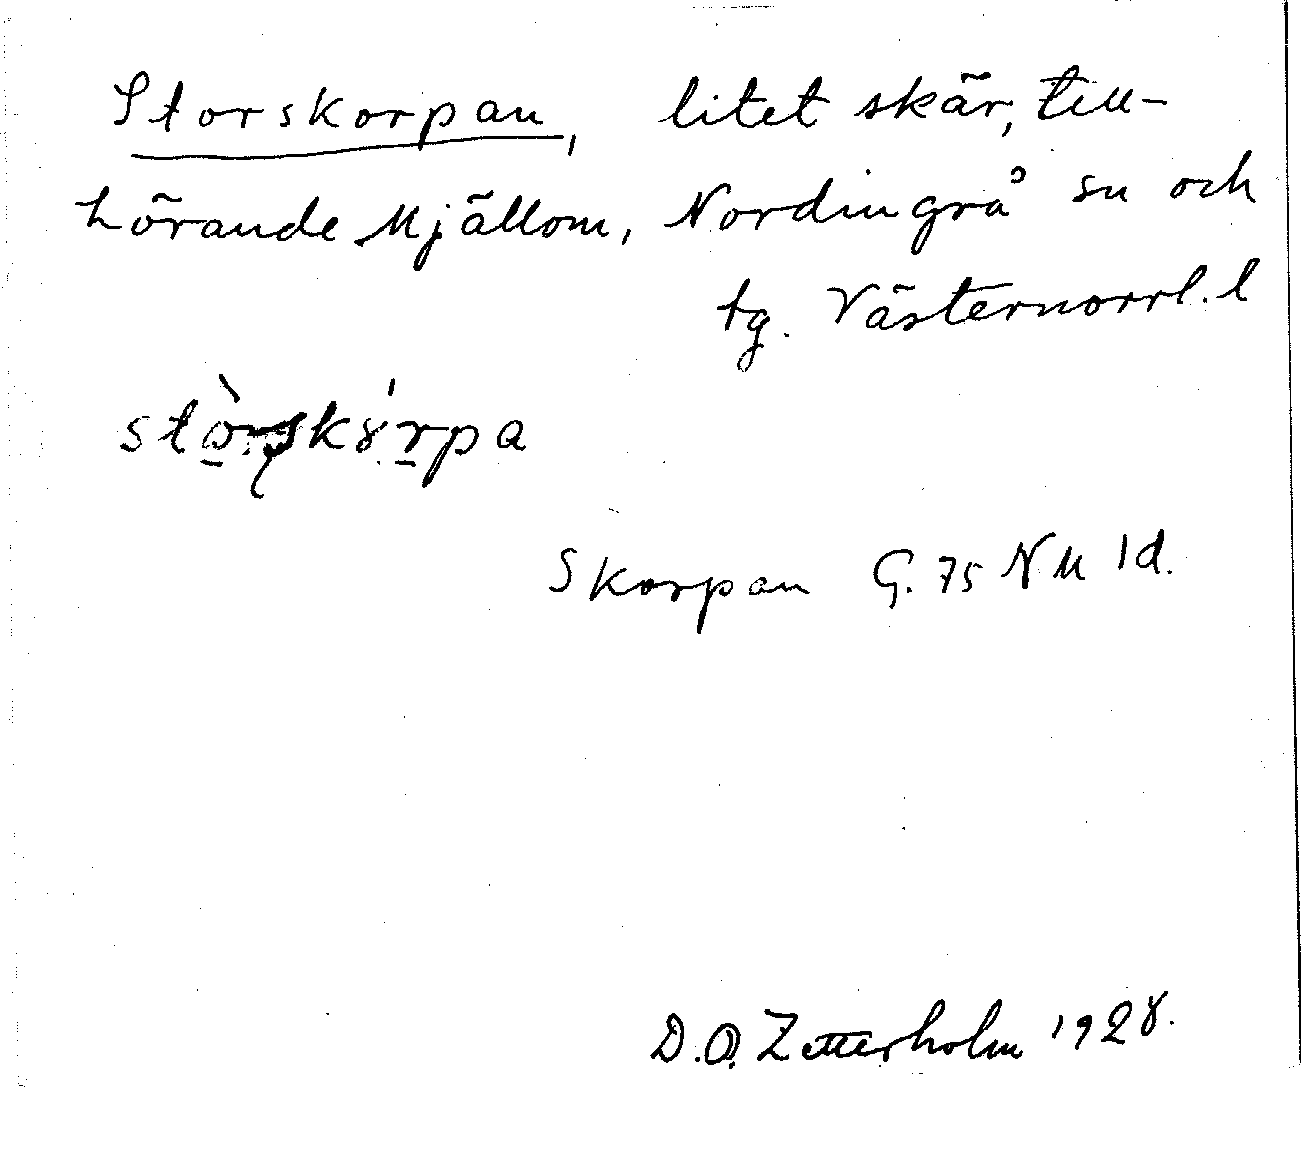 Storskorpan, litet skär, till-
hörande Mjällom, Nordingrå sn och
tg. Västernorrl. l
Skorpan G. 75 NM 1d.
D.O. Zetterholm 1928.